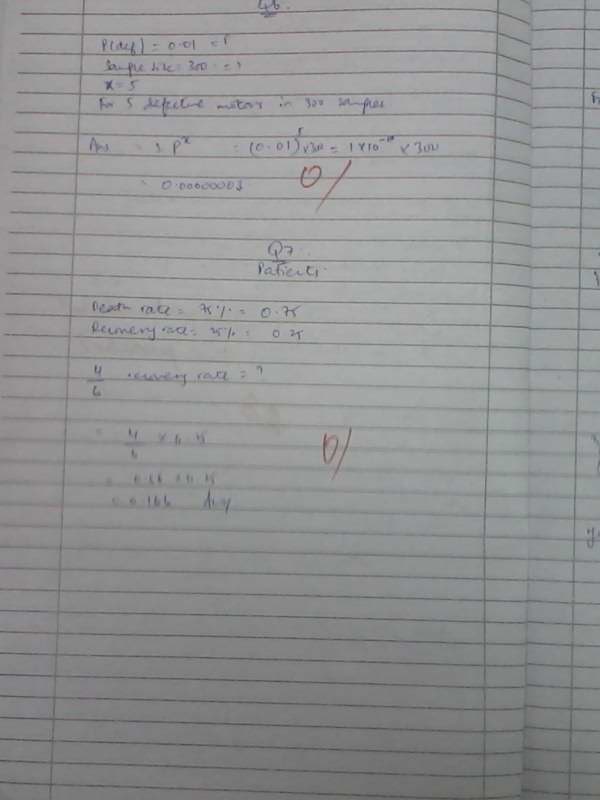 Q6.
P(def) = 0.01 = P
Sample size = 300 = n
x = 5
For 5 defective motors in 300 samples
Ans = P^x = (0.01)^5 × 300 = 1 × 10^-10 × 300
= 0.00000003
0/
Q7.
Patients.
Death rate = 75% = 0.75
Recovery rate = 25% = 0.25
4/6 recovery rate = ?
= 4/6 ×
0/
=
= 0.166